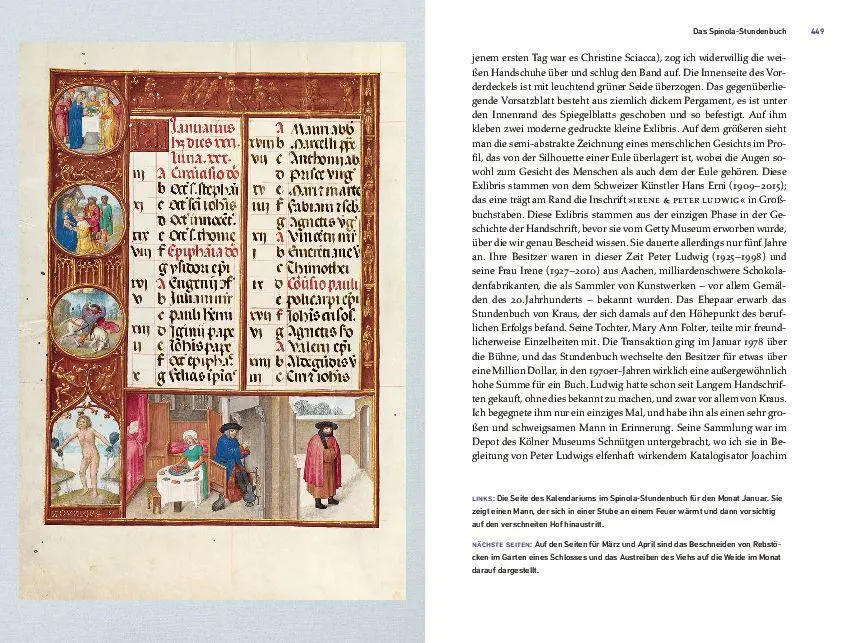 Januarius
Luna. xxx.
A
b
c
d
e
f
g
A
b
c
d
e
f
g
A
b
c
d
e
f
g
A
b
c
d
e
f
g
A
b
c
Das Spinola-Stundenbuch 449
jenem ersten Tag war es Christine Sciacca), zog ich widerwillig die wei-
ßen Handschuhe über und schlug den Band auf. Die Innenseite des Vor-
derdeckels ist mit leuchtend grüner Seide überzogen. Das gegenüberlie-
gende Vorsatzblatt besteht aus ziemlich dickem Pergament, es ist unter
den Innenrand des Spiegelblatts geschoben und so befestigt. Auf ihm
kleben zwei moderne gedruckte kleine Exlibris. Auf dem größeren sieht
man die semi-abstrakte Zeichnung eines menschlichen Gesichts im Pro-
fil, das von der Silhouette einer Eule überlagert ist, wobei die Augen so-
wohl zum Gesicht des Menschen als auch dem der Eule gehören. Diese
Exlibris stammen von dem Schweizer Künstler Hans Erni (1909–2015);
das eine trägt am Rand die Inschrift »IRENE & PETER LUDWIG« in Groß-
buchstaben. Diese Exlibris stammen aus der einzigen Phase in der Ge-
schichte der Handschrift, bevor sie vom Getty Museum erworben wurde,
über die wir genau Bescheid wissen. Sie dauerte allerdings nur fünf Jahre
an. Ihre Besitzer waren in dieser Zeit Peter Ludwig (1925–1998) und
seine Frau Irene (1927–2010) aus Aachen, milliardenschwere Schokola-
denfabrikanten, die als Sammler von Kunstwerken – vor allem Gemäl-
den des 20.Jahrhunderts – bekannt wurden. Das Ehepaar erwarb das
Stundenbuch von Kraus, der sich damals auf den Höhepunkt des beruf-
lichen Erfolgs befand. Seine Tochter, Mary Ann Folter, teilte mir freund-
licherweise Einzelheiten mit. Die Transaktion ging im Januar 1978 über
die Bühne, und das Stundenbuch wechselte den Besitzer für etwas über
eine Million Dollar, in den 1970er-Jahren wirklich eine außergewöhnlich
hohe Summe für ein Buch. Ludwig hatte schon seit Langem Handschrif-
ten gekauft, ohne dies bekannt zu machen, und zwar vor allem von Kraus.
Ich begegnete ihm nur ein einziges Mal, und habe ihn als einen sehr gro-
ßen und schweigsamen Mann in Erinnerung. Seine Sammlung war im
Depot des Kölner Museums Schnütgen untergebracht, wo ich sie in Be-
gleitung von Peter Ludwigs elfenhaft wirkendem Katalogisator Joachim
LINKS: Die Seite des Kalendariums im Spinola-Stundenbuch für den Monat Januar. Sie
zeigt einen Mann, der sich in einer Stube an einem Feuer wärmt und dann vorsichtig
auf den verschneiten Hof hinaustritt.
NÄCHSTE SEITEN: Auf den Seiten für März und April sind das Beschneiden von Rebstö-
cken im Garten eines Schlosses und das Austreiben des Viehs auf die Weide im Monat
darauf dargestellt.